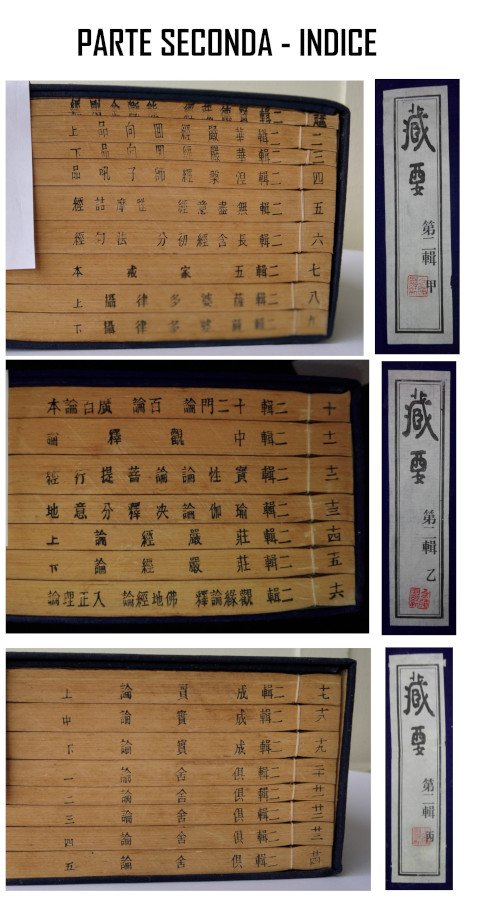 PARTE SECONDA - INDICE
二 二輯 華嚴經 回向品 上
三 二輯 華嚴經 回向品 下
四 二輯 涅槃經 師子吼品
五 二輯 無盡意經 維摩詰經
六 二輯 長含經初分 法句經
七 二輯 五家戒本
八 二輯 薩婆多律攝 上
九 二輯 薩婆多律攝 下
藏要
第二輯 甲
十 二輯 十二門論 百論 廣百論本
十一 二輯 中觀釋論
十二 二輯 寶性論 菩提行經
十三 二輯 瑜伽論決擇分意地
十四 二輯 莊嚴經論 上
十五 二輯 莊嚴經論 下
十六 二輯 觀緣論釋 佛地經論 入正理論
藏要
第二輯 乙
十七 二輯 成實論 上
十八 二輯 成實論 中
十九 二輯 成實論 下
二十 二輯 俱舍論 一
廿一 二輯 俱舍論 二
廿二 二輯 俱舍論 三
廿三 二輯 俱舍論 四
廿四 二輯 俱舍論 五
藏要
第二輯 丙